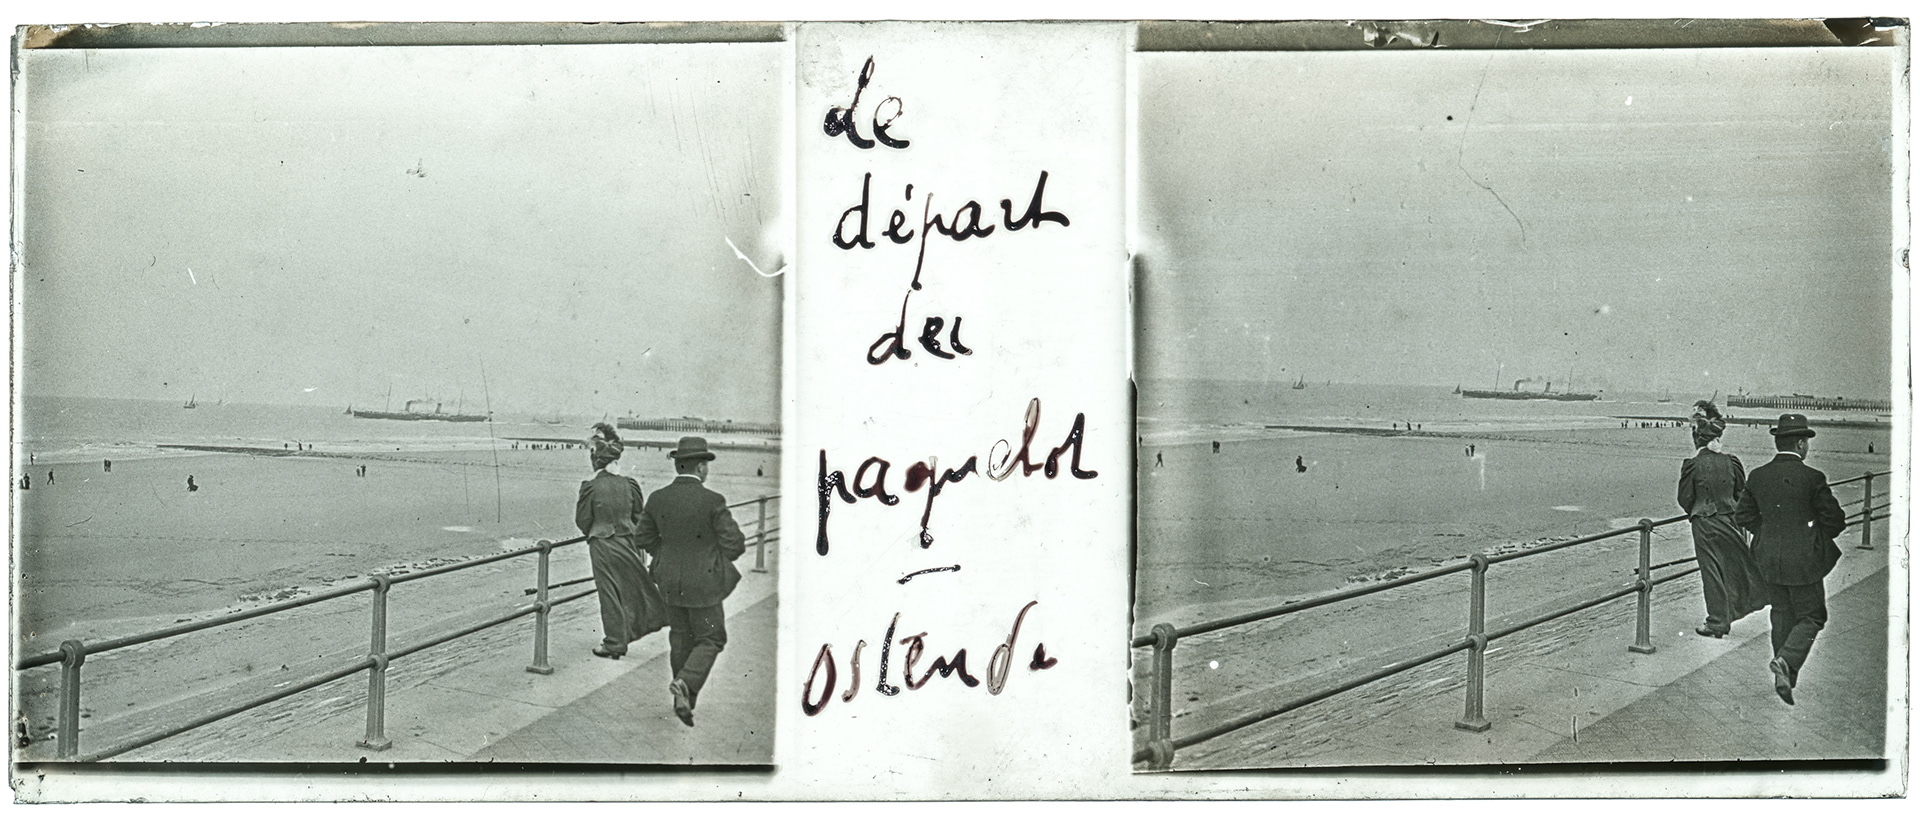 le
départ
du
paquebot
—
ostende